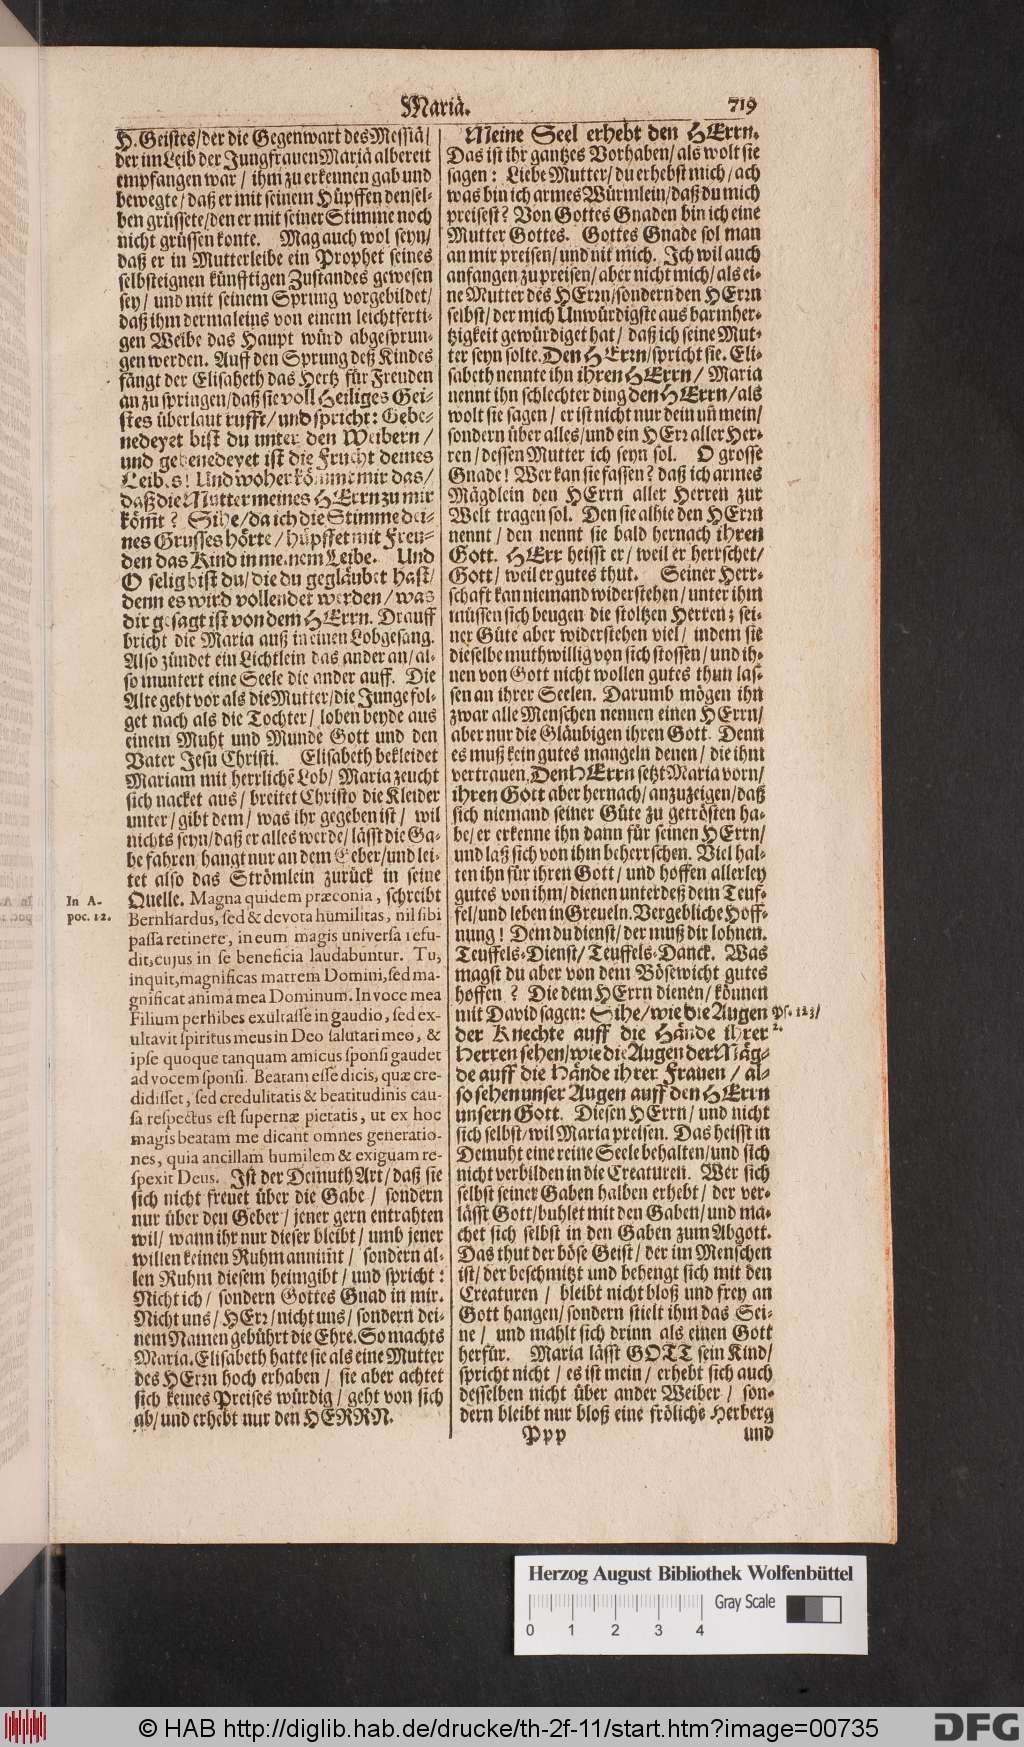 Mariä.
719
H. Geistes/ der die Gegenwart des Messiä/
der im Leib der Jungfrauen Mariä albereit
empfangen war / ihm zu erkennen gab und
bewegte/ daß er mit seinem Hüpffen densel-
ben grüssete/ den er mit seiner Stimme noch
nicht grüssen konte. Mag auch wol seyn/
daß er in Mutterleibe ein Prophet seines
selbsteignen künfftigen Zustandes gewesen
sey/ und mit seinem Sprung vorgebildet/
daß ihm dermaleins von einem leichtferti-
gen Weibe das Haupt würd abgesprun-
gen werden. Auff den Sprung deß Kindes
fängt der Elisabeth das Hertz für Freuden
an zu springen/ daß sie voll Heiliges Gei-
stes überlaut rufft/ und spricht: Gebe-
nedeyet bist du unter den Weibern /
und gebenedeyet ist die Frucht deines
Leibes! Und woher kömmt mir das/
daß die Mutter meines HErrn zu mir
köm̃t? Sihe/ da ich die Stimme dei-
nes Grusses hörte/ hüpffet mit Freu-
den das Kind in meinem Leibe. Und
O selig bist du/ die du gegläubet hast/
denn es wird vollendet werden/ was
dir gesagt ist von dem HErrn. Drauff
bricht die Maria auß in einen Lobgesang.
Also zündet ein Lichtlein das ander an/ al-
so muntert eine Seele die ander auff. Die
Alte geht vor als die Mutter/ die Junge fol-
get nach als die Tochter/ loben beyde aus
einem Muht und Munde Gott und den
Vater Jesu Christi. Elisabeth bekleidet
Mariam mit herrlichẽ Lob/ Maria zeucht
sich nacket aus/ breitet Christo die Kleider
unter/ gibt dem/ was ihr gegeben ist/ wil
nichts seyn/ daß er alles werde/ lässt die Ga-
be fahren/ hangt nur an dem Geber/ und lei-
tet also das Strömlein zurück in seine
Quelle. Magna quidem præconia, schreibt
In A-
poc. 12.
Bernhardus, sed & devota humilitas, nil sibi
passa retinere, in eum magis universa refu-
dit, cujus in se beneficia laudabuntur. Tu,
inquit, magnificas matrem Domini, sed ma-
gnificat anima mea Dominum. In voce mea
Filium perhibes exultasse in gaudio, sed ex-
ultavit spiritus meus in Deo salutari meo, &
ipse quoque tanquam amicus sponsi gaudet
ad vocem sponsi. Beatam esse dicis, quæ cre-
didisset, sed credulitatis & beatitudinis cau-
sa respectus est supernæ pietatis, ut ex hoc
magis beatam me dicant omnes generatio-
nes, quia ancillam humilem & exiguam re-
spexit Deus. Ist der Demuth Art/ daß sie
sich nicht freuet über die Gabe/ sondern
nur über den Geber/ jener gern entrahten
wil/ wann ihr nur dieser bleibt/ umb jener
willen keinen Ruhm annim̃t/ sondern al-
len Ruhm diesem heimgibt/ und spricht:
Nicht ich/ sondern Gottes Gnad in mir.
Nicht uns/ HErr/ nicht uns/ sondern dei-
nem Namen gebührt die Ehre. So machts
Maria. Elisabeth hatte sie als eine Mutter
des HErrn hoch erhaben/ sie aber achtet
sich keines Preises würdig/ geht von sich
ab/ und erhebt nur den HERRN.
Meine Seel erhebt den HErrn.
Das ist ihr gantzes Vorhaben/ als wolt sie
sagen: Liebe Mutter/ du erhebst mich/ ach
was bin ich armes Würmlein/ daß du mich
preisest? Von Gottes Gnaden bin ich eine
Mutter Gottes. Gottes Gnade sol man
an mir preisen/ und nit mich. Ich wil auch
anfangen zu preisen/ aber nicht mich/ als ei-
ne Mutter des HErrn/ sondern den HErrn
selbst/ der mich Unwürdigste aus barmher-
tzigkeit gewürdiget hat/ daß ich seine Mut-
ter seyn solte. Den HErrn/ spricht sie. Eli-
sabeth nennte ihn ihren HErrn/ Maria
nennt ihn schlechter ding den HErrn/ als
wolt sie sagen/ er ist nicht nur dein uñ mein/
sondern über alles/ und ein HErr aller Her-
ren/ dessen Mutter ich seyn sol. O grosse
Gnade! Wer kan sie fassen? daß ich armes
Mägdlein den HErrn aller Herren zur
Welt tragen sol. Den sie alhie den HErrn
nennt/ den nennt sie bald hernach ihren
Gott. HErr heisst er/ weil er herrschet/
Gott/ weil er gutes thut. Seiner Herr-
schaft kan niemand widerstehen/ unter ihm
müssen sich beugen die stoltzen Herren; sei-
ner Güte aber widerstehen viel/ indem sie
dieselbe muthwillig von sich stossen/ und ih-
nen von Gott nicht wollen gutes thun las-
sen an ihrer Seelen. Darumb mögen ihn
zwar alle Menschen nennen einen HErrn/
aber nur die Gläubigen ihren Gott. Denn
es muß kein gutes mangeln denen/ die ihm
vertrauen. Den HErrn setzt Maria vorn/
ihren Gott aber hernach/ anzuzeigen/ daß
sich niemand seiner Güte zu getrösten ha-
be/ er erkenne ihn dann für seinen HErrn/
und laß sich von ihm beherrschen. Viel hal-
ten ihn für ihren Gott/ und hoffen allerley
gutes von ihm/ dienen unterdeß dem Teuf-
fel/ und leben in Greueln. Vergebliche Hoff-
nung! Dem du dienst/ der muß dir lohnen.
Teuffels-Dienst/ Teuffels-Danck. Was
magst du aber von dem Bösewicht gutes
hoffen? Die dem HErrn dienen/ können
mit David sagen: Sihe/ wie die Augen
Ps. 123/
2.
der Knechte auff die Hände ihrer
Herren sehen/ wie die Augen der Mäg-
de auff die Hände ihrer Frauen / al-
so sehen unser Augen auff den HErrn
unsern Gott. Diesen HErrn/ und nicht
sich selbst/ wil Maria preisen. Das heisst in
Demuht eine reine Seele behalten/ und sich
nicht verbilden in die Creaturen. Wer sich
selbst seiner Gaben halben erhebt/ der ver-
lässt Gott/ buhlet mit den Gaben/ und ma-
chet sich selbst in den Gaben zum Abgott.
Das thut der böse Geist/ der im Menschen
ist/ der beschmitzt und behengt sich mit den
Creaturen/ bleibt nicht bloß und frey an
Gott hangen/ sondern stielt ihm das Sei-
ne/ und mahlt sich drinn als einen Gott
herfür. Maria lässt GOTT sein Kind/
spricht nicht/ es ist mein/ erhebt sich auch
desselben nicht über ander Weiber/ son-
dern bleibt nur bloß eine fröliche Herberg
Ppp
und
Herzog August Bibliothek Wolfenbüttel
Gray Scale
0 1 2 3 4
© HAB http://diglib.hab.de/drucke/th-2f-11/start.htm?image=00735
DFG